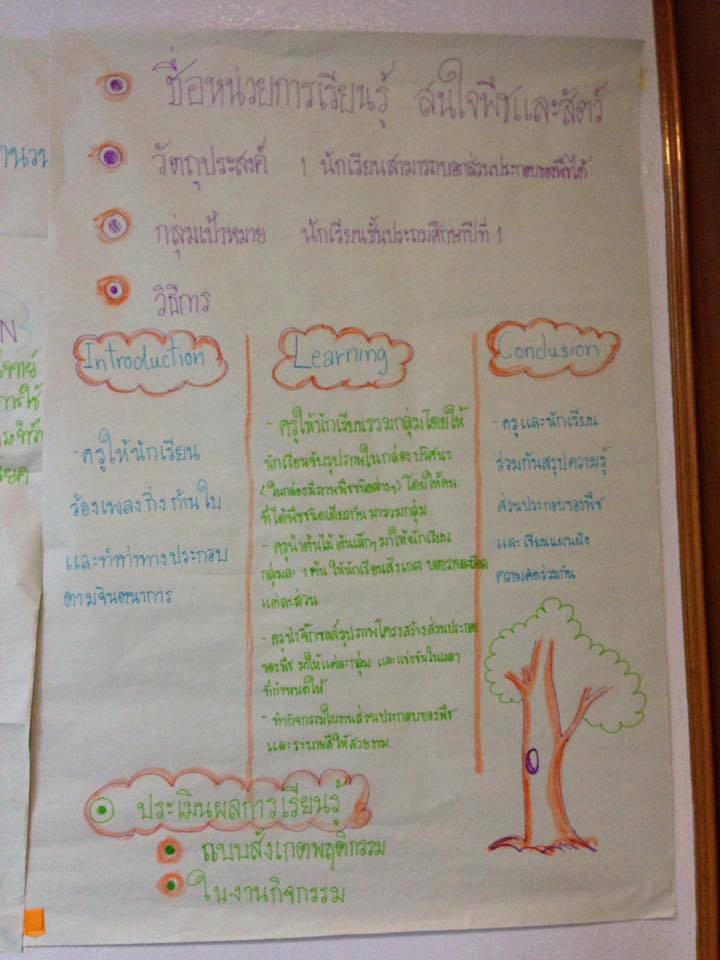 ชื่อหน่วยการเรียนรู้ สนใจพืชและสัตว์
วัตถุประสงค์ 1 นักเรียนสามารถบอกส่วนประกอบของพืชได้
กลุ่มเป้าหมาย นักเรียนชั้นประถมศึกษาปีที่ 1
วิธีการ
Introduction
- ครูให้นักเรียน
ร้องเพลง กิ่ง ก้าน ใบ
และทำท่าทางประกอบ
ตามจินตนาการ
Learning
- ครูให้นักเรียนรวมกลุ่มโดยให้
นักเรียนจับรูปภาพในกล่องปริศนา
(ในกล่องมีภาพพืชชนิดต่างๆ) โดยให้คน
ที่ได้พืชชนิดเดียวกันมารวมกลุ่ม
- ครูนำต้นไม้ต้นเล็กๆ มาให้นักเรียน
กลุ่มละ 1 ต้น ให้นักเรียนสังเกต บอกรายละเอียด
แต่ละส่วน
- ครูนำจิ๊กซอล์รูปภาพโครงสร้างส่วนประกอบ
ของพืช มาให้แต่ละกลุ่ม และแข่งขันในเวลา
ที่กำหนดให้
- ทำกิจกรรมใบงานส่วนประกอบของพืช
และระบายสีให้สวยงาม.
Conclusion
- ครูและนักเรียน
ร่วมกันสรุปความรู้
ส่วนประกอบของพืช
และเขียนแผนผัง
ความคิดร่วมกัน
ประเมินผลการเรียนรู้
แบบสังเกตพฤติกรรม
ใบงานกิจกรรม